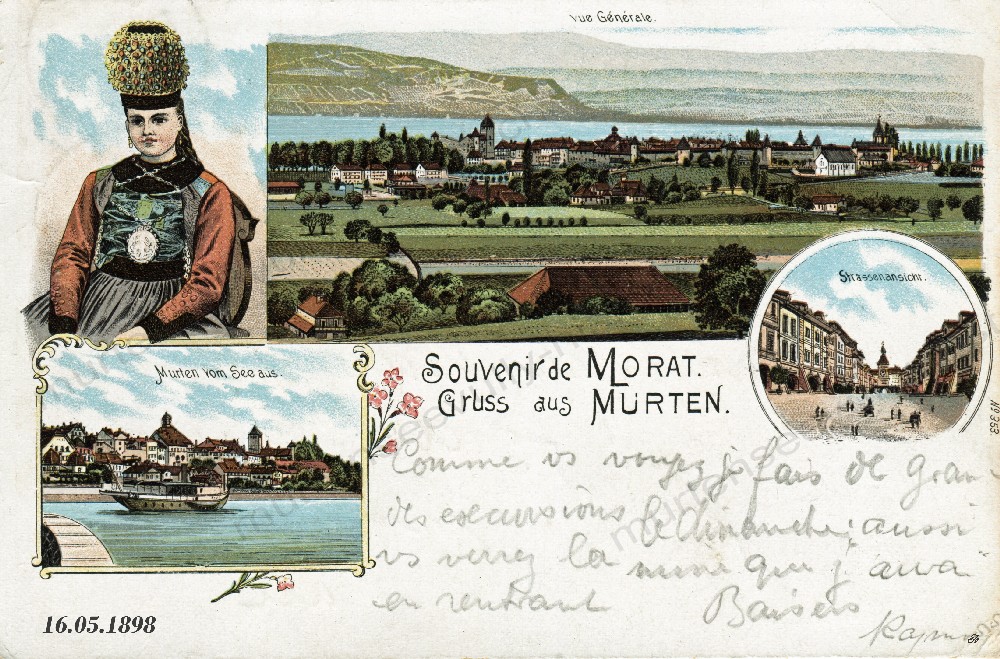 Vue Générale.
Strassenansicht.
Murten vom See aus.
Souvenir de MORAT.
Gruss aus MURTEN.
No 353
Comme vs voyez j fais de gran
des excursions le dimanche; aussi
vs verrez la mine que j'aurai
en rentrant Baisers
16.05.1898